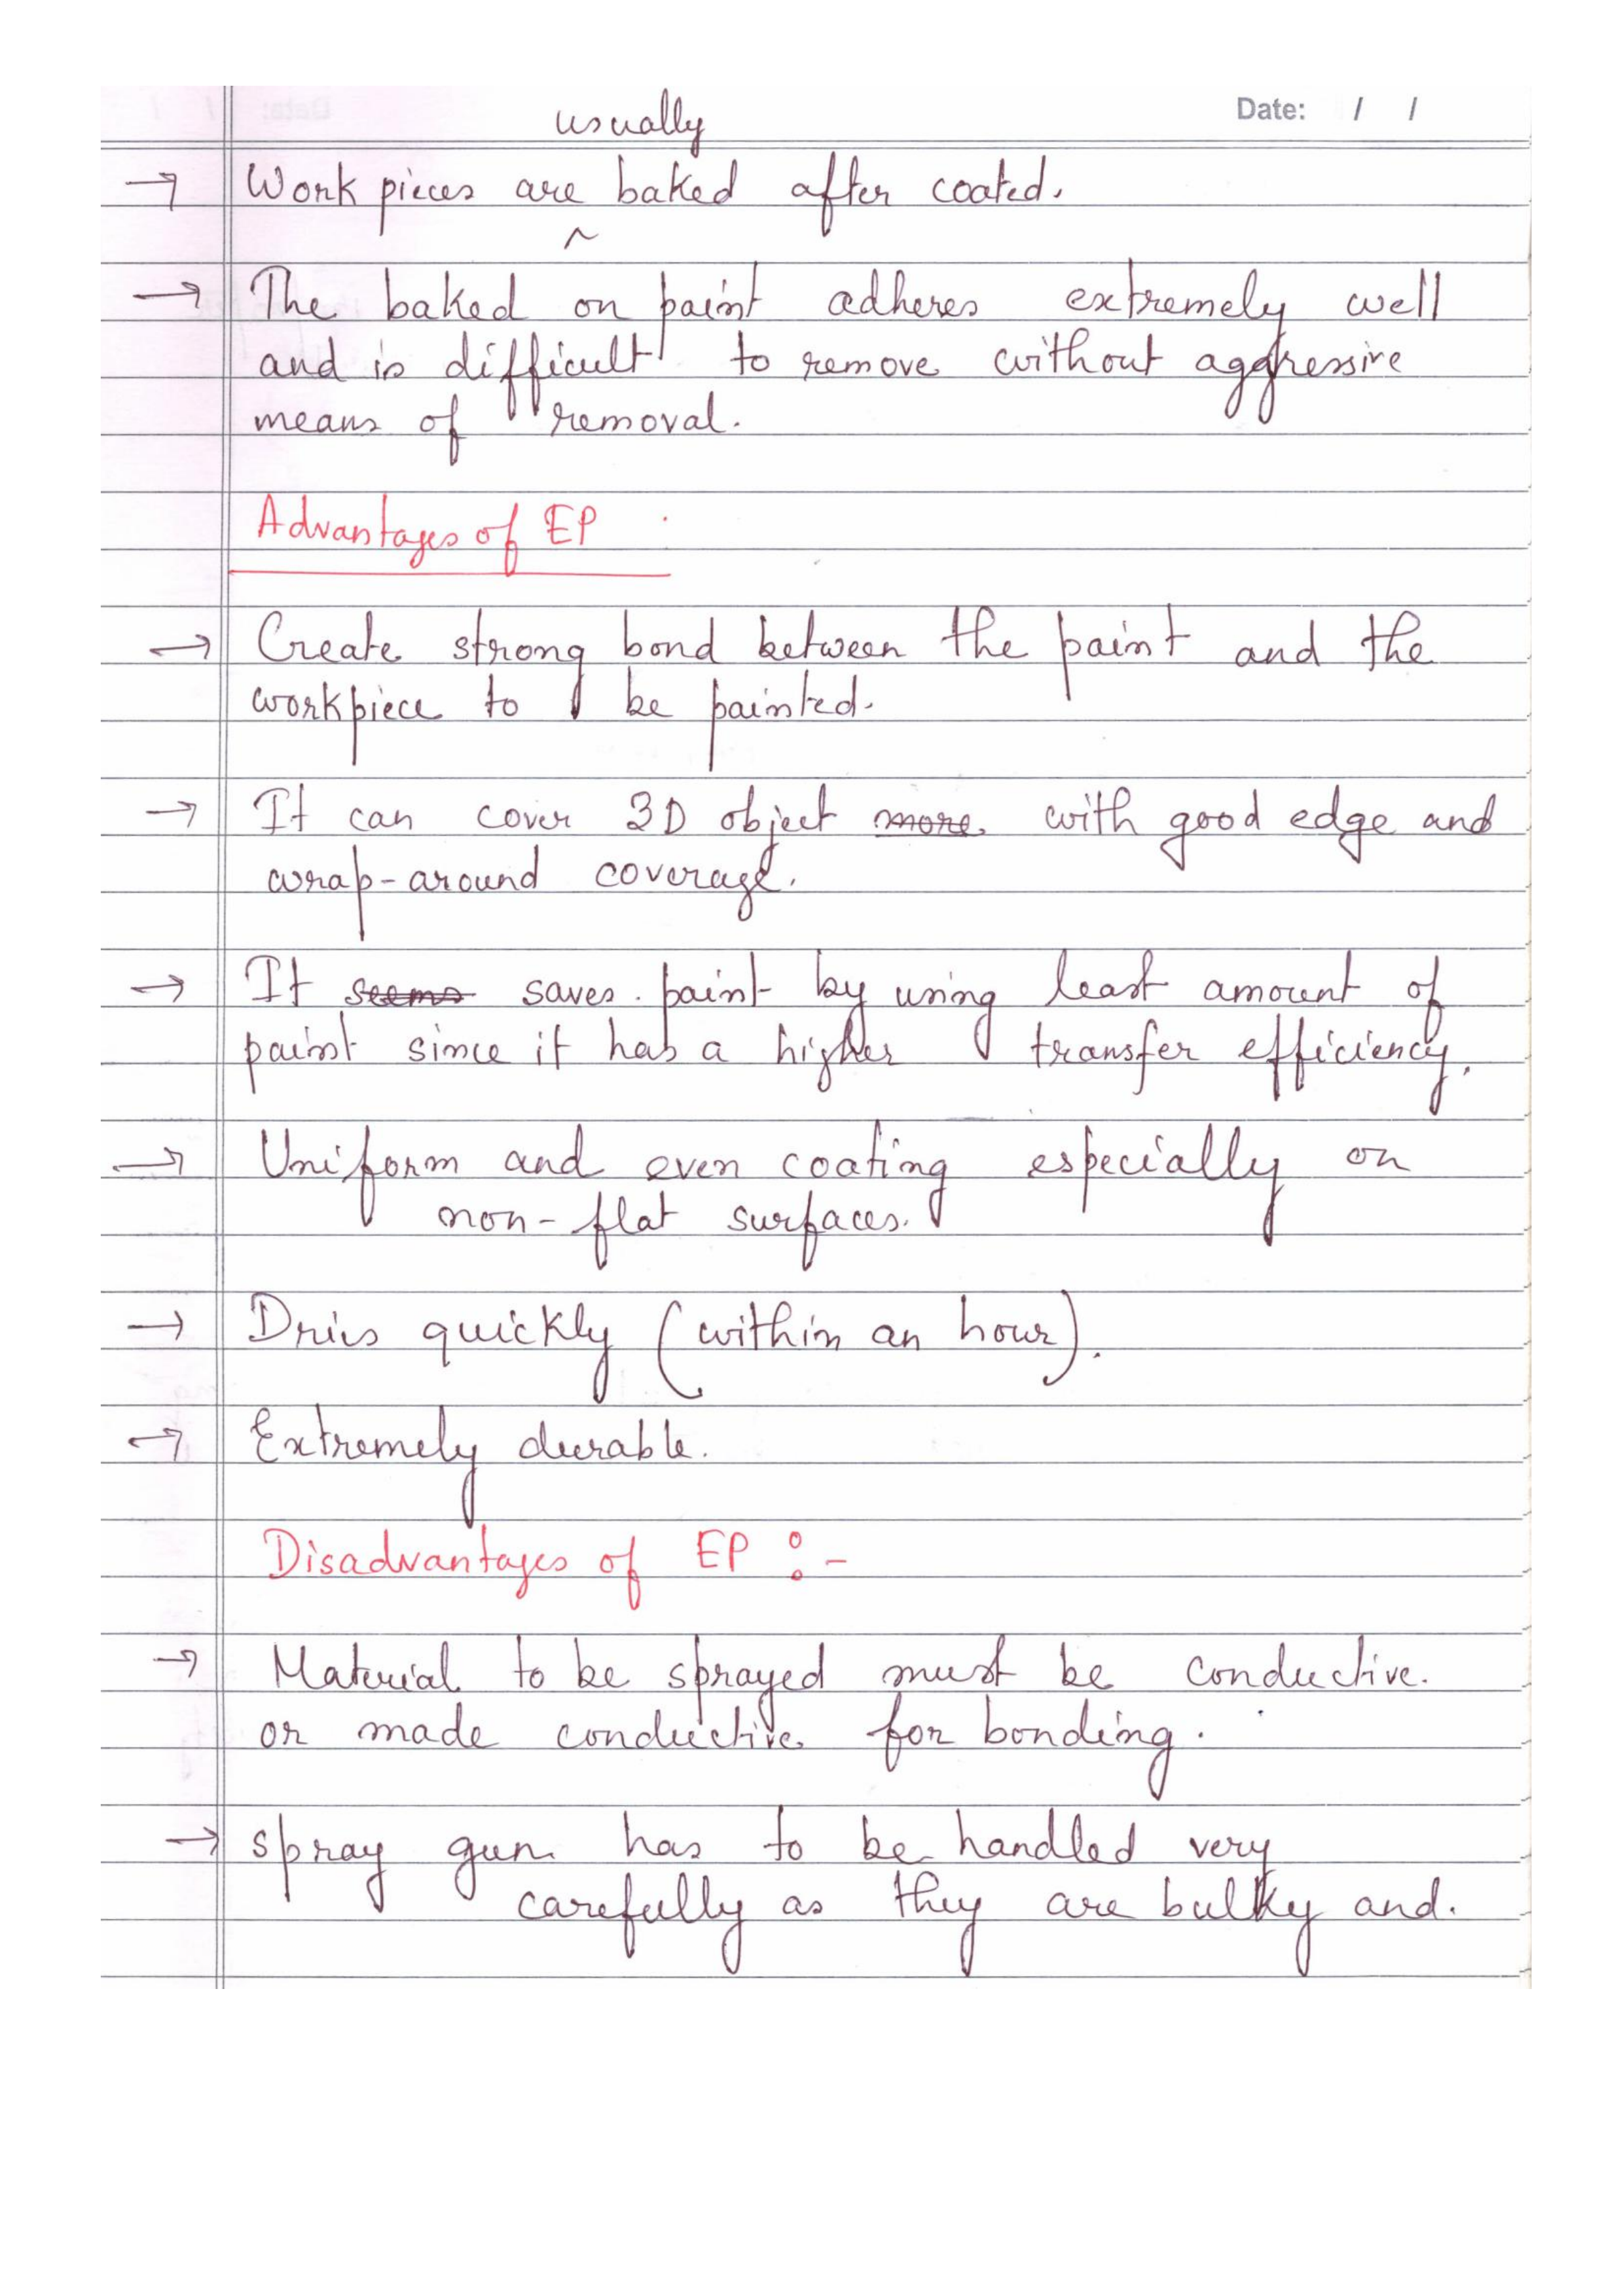 Date: / /
usually
→ Work pieces are baked after coated.
^
→ The baked on paint adheres extremely well
and is difficult to remove without aggressive
means of removal.
Advantages of EP
→ Create strong bond between the paint and the
workpiece to be painted.
→ It can cover 3D object more with good edge and
wrap-around coverage.
→ It seems saves paint by using least amount of
paint since it has a higher transfer efficiency.
→ Uniform and even coating especially on
non-flat surfaces.
→ Dries quickly (within an hour).
→ Extremely durable.
Disadvantages of EP :-
→ Material to be sprayed must be conductive.
or made conductive for bonding.
→ spray gun has to be handled very
carefully as they are bulky and.